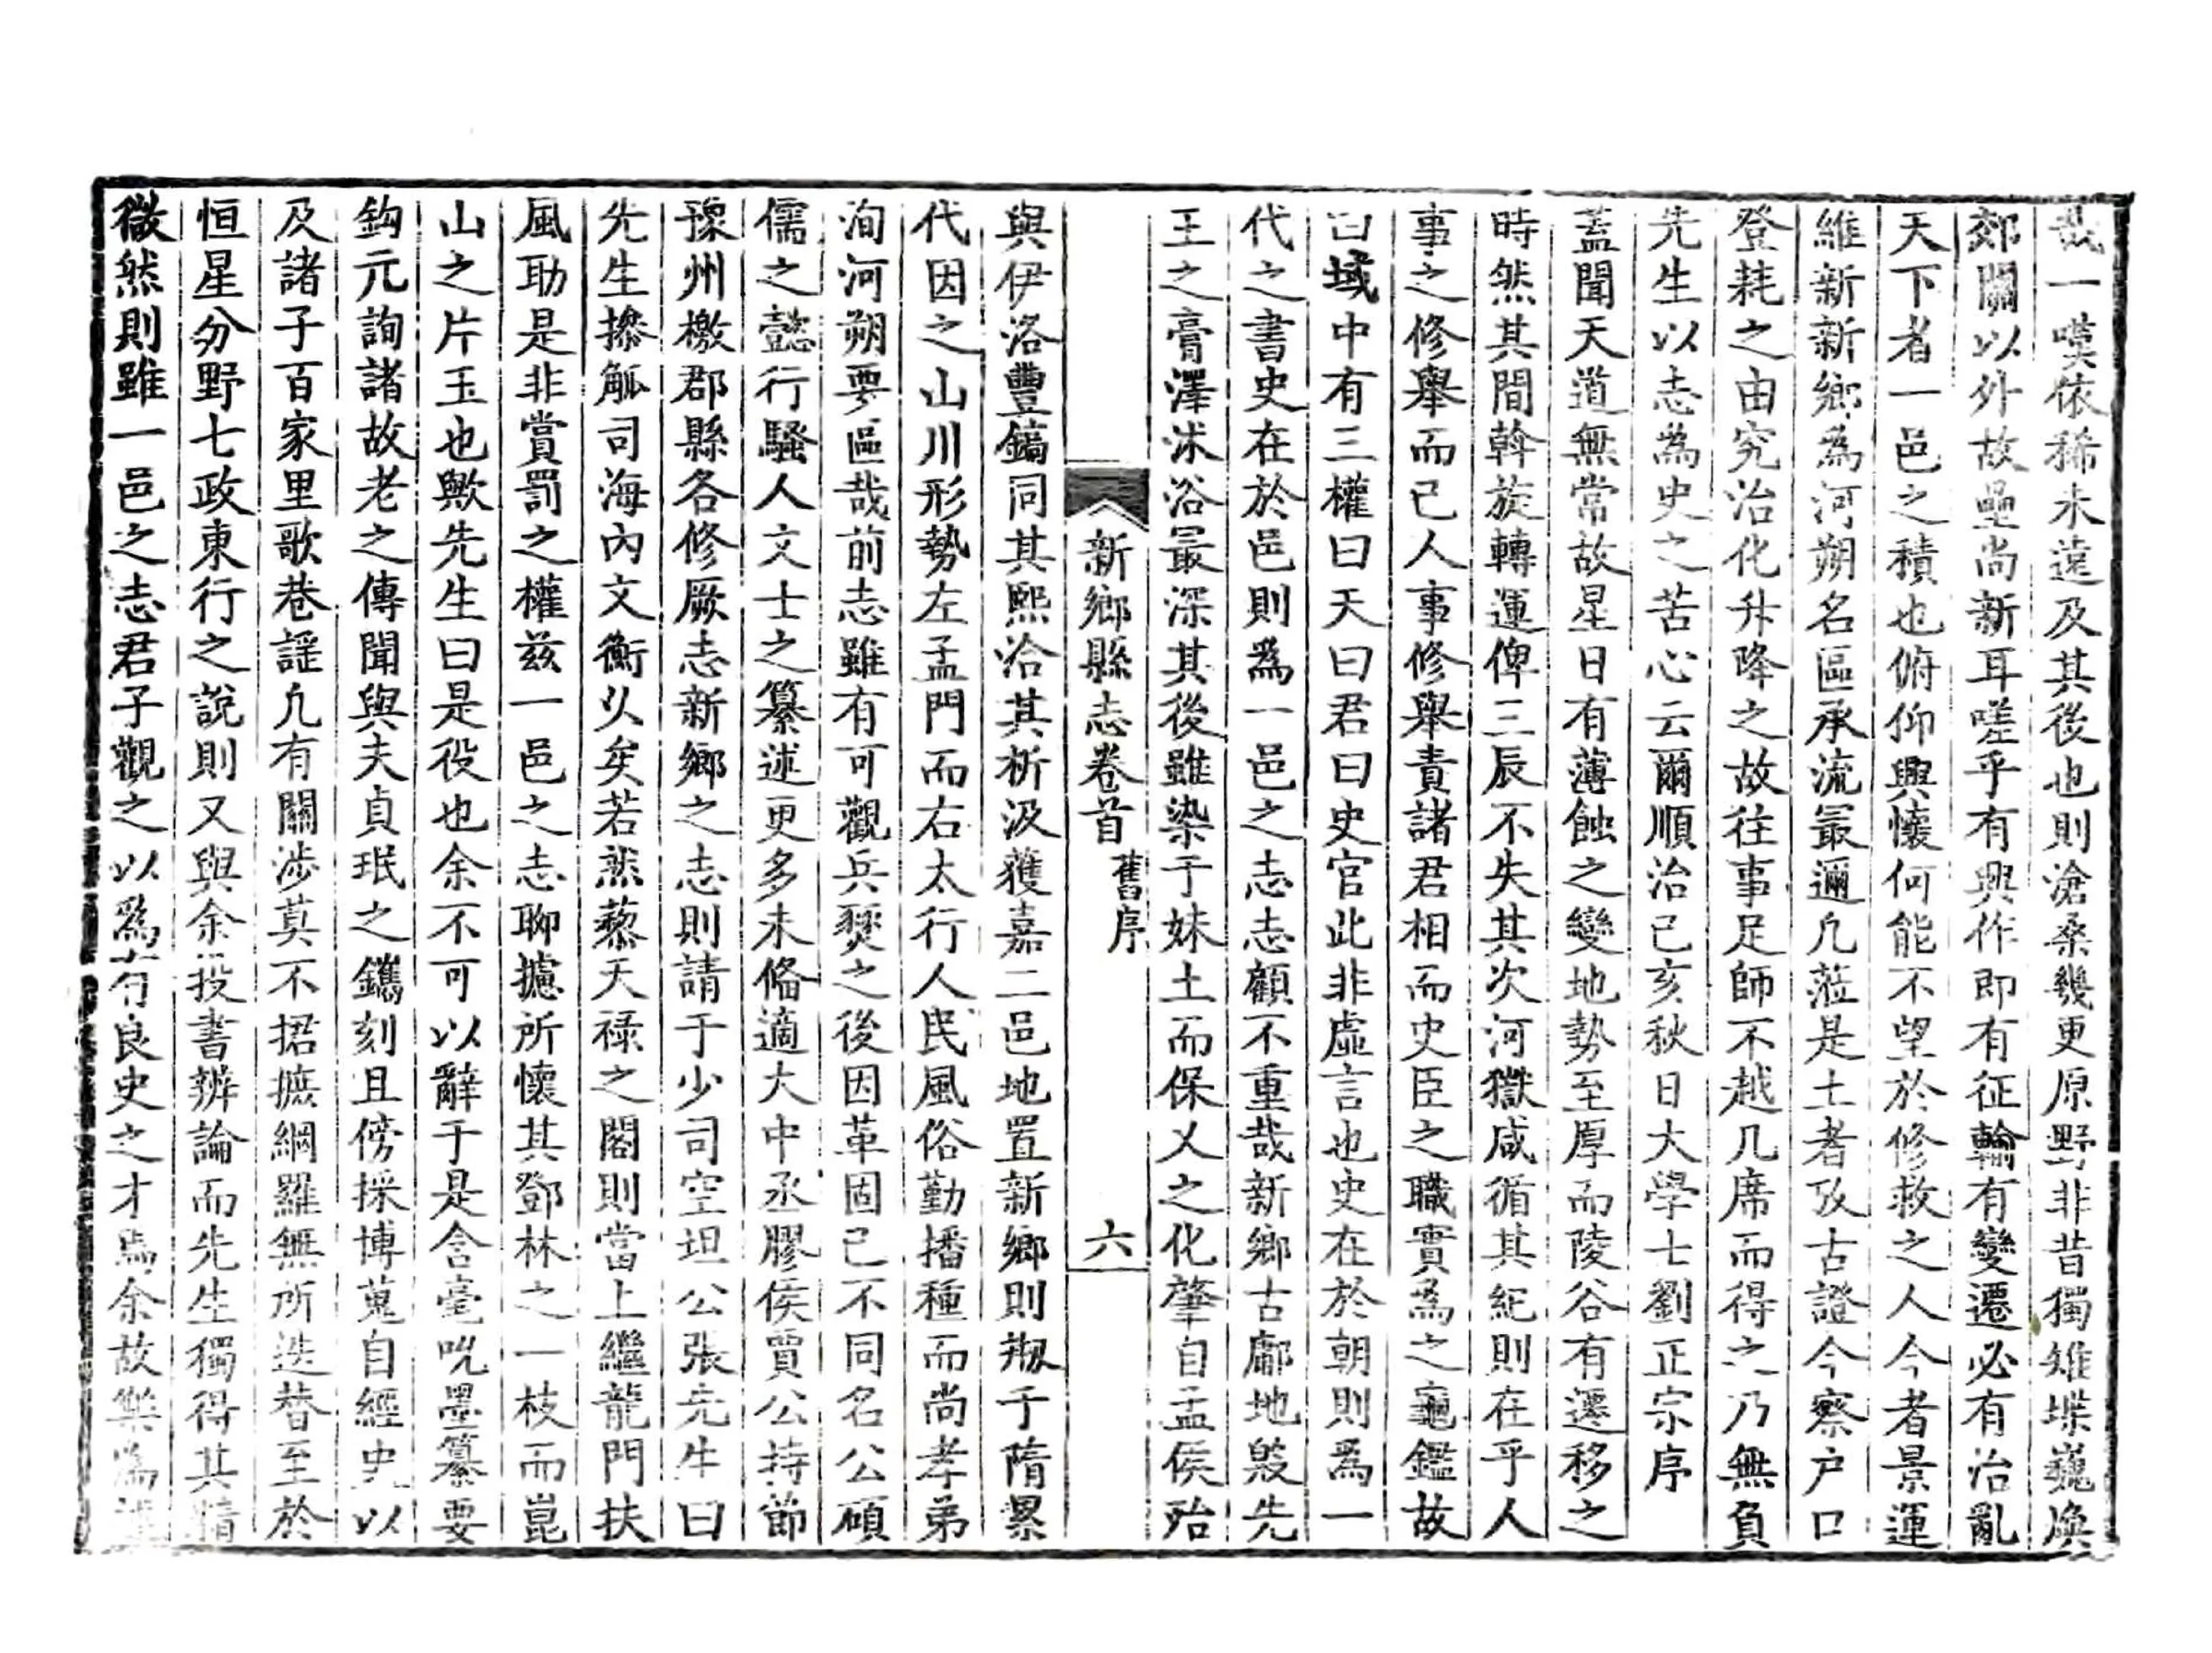 哉一嘆依稀未遠及其後也則滄桑幾更原野非昔獨雉堞巍煥
郊關以外故壘尚新耳嗟乎有興作即有征輸有變遷必有治亂
天下者一邑之積也俯仰興懷何能不望於修救之人今者景運
維新新鄉為河朔名區承流最邇凡蒞是土者攷古證今察户口
登耗之由究治化升降之故往事足師不越几席而得之乃無負
先生以志為史之苦心云爾順治己亥秋日大學士劉正宗序
蓋聞天道無常故星日有薄蝕之變地勢至厚而陵谷有遷移之
時然其間斡旋轉運俾三辰不失其次河嶽咸循其紀則在乎人
事之修舉而已人事修舉責諸君相而史臣之職實為之龜鑑故
曰域中有三權曰天曰君曰史官此非虛言也史在於朝則為一
代之書史在於邑則為一邑之志志顧不重哉新鄉古鄘地殷先
王之膏澤沐浴最深其後雖染于妹土而保乂之化肇自孟侯殆
新鄉縣志卷首 舊序 六
與伊洛豐鎬同其熙洽其析汲獲嘉二邑地置新鄉則刱于隋累
代因之山川形勢左孟門而右太行人民風俗勤播種而尚孝弟
洵河朔要區哉前志雖有可觀兵燹之後因革固已不同名公碩
儒之懿行騷人文士之纂述更多未偹適大中丞膠侯賈公持節
豫州檄郡縣各修厥志新鄉之志則請于少司空坦公張先生曰
先生摻觚司海內文衡乆矣若燃藜天祿之閣則當上繼龍門扶
風助是非賞罰之權兹一邑之志聊攄所懷其鄧林之一枝而崑
山之片玉也歟先生曰是役也余不可以辭于是含毫吮墨纂要
鈎元詢諸故老之傳聞與夫貞珉之鐫刻且傍採博蒐自經史以
及諸子百家里歌巷謡凢有關涉莫不捃摭網羅無所迭替至於
恒星分野七政東行之說則又與余投書辨論而先生獨得其精
徽然則雖一邑之志君子觀之以為有良史之才焉余故樂為